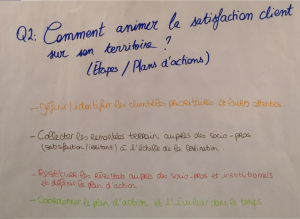 Q2: Comment animer la satisfaction client
sur son territoire ?
(Etapes / Plans d'actions)
- Définir / identifier les clientèles prioritaires et leurs attentes.
- Collecter les remontées terrain auprès des socio-pros
(satisfaction/irritant) à l'échelle de la destination.
- Restituer les résultats auprès des socio-pros et institutionnels
et définir le plan d'action
- Coordonner le plan d'action et l'évaluer dans le temps